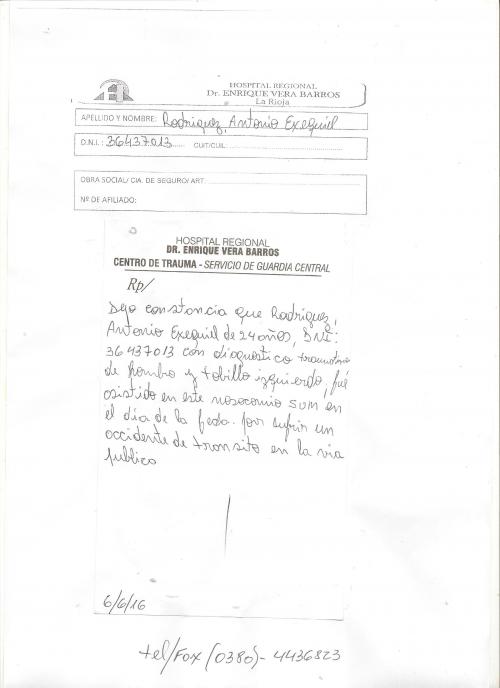 HOSPITAL REGIONAL
Dr. ENRIQUE VERA BARROS
La Rioja
APELLIDO Y NOMBRE: Rodriguez, Antonio Exequiel
D.N.I.: 36437013 CUIT/CUIL:
OBRA SOCIAL/ CIA. DE SEGURO/ ART:
Nº DE AFILIADO:
HOSPITAL REGIONAL
DR. ENRIQUE VERA BARROS
CENTRO DE TRAUMA - SERVICIO DE GUARDIA CENTRAL
Rp/
Dejo constancia que Rodriguez,
Antonio Exequiel de 24 años, DNI:
36437013 con diagnostico
de hombro y tobillo izquierdo, fué
asistido en este nosocomio SUM en
el día de la fecha. por sufrir un
accidente de transito en la via
publica
6/6/16
tel/Fax (0380)- 4436823